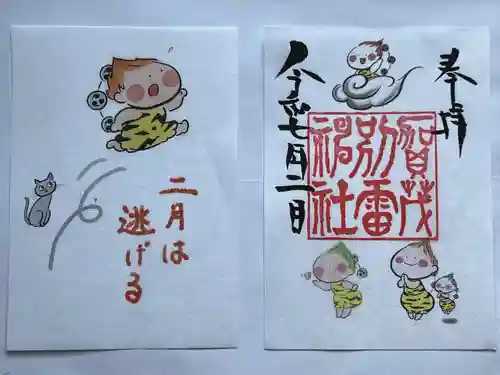 二月は
逃げる
奉拝
賀茂
別雷
神社
令和七月二日